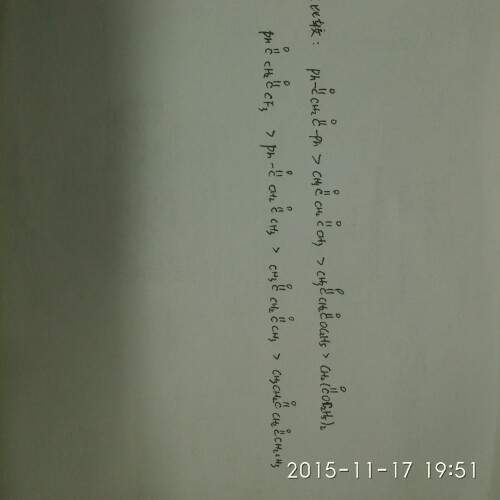 比较酸度：
Ph-C(=O)CH2C(=O)-Ph > CH3C(=O)CH2C(=O)CH3 > CH3C(=O)CH2C(=O)OC2H5 > CH2(C(=O)OC2H5)2
PhC(=O)CH2C(=O)CF3 > Ph-C(=O)CH2C(=O)CH3 > CH3C(=O)CH2C(=O)CH3 > CH3CH2C(=O)CH2C(=O)CH2CH3
2015-11-17 19:51